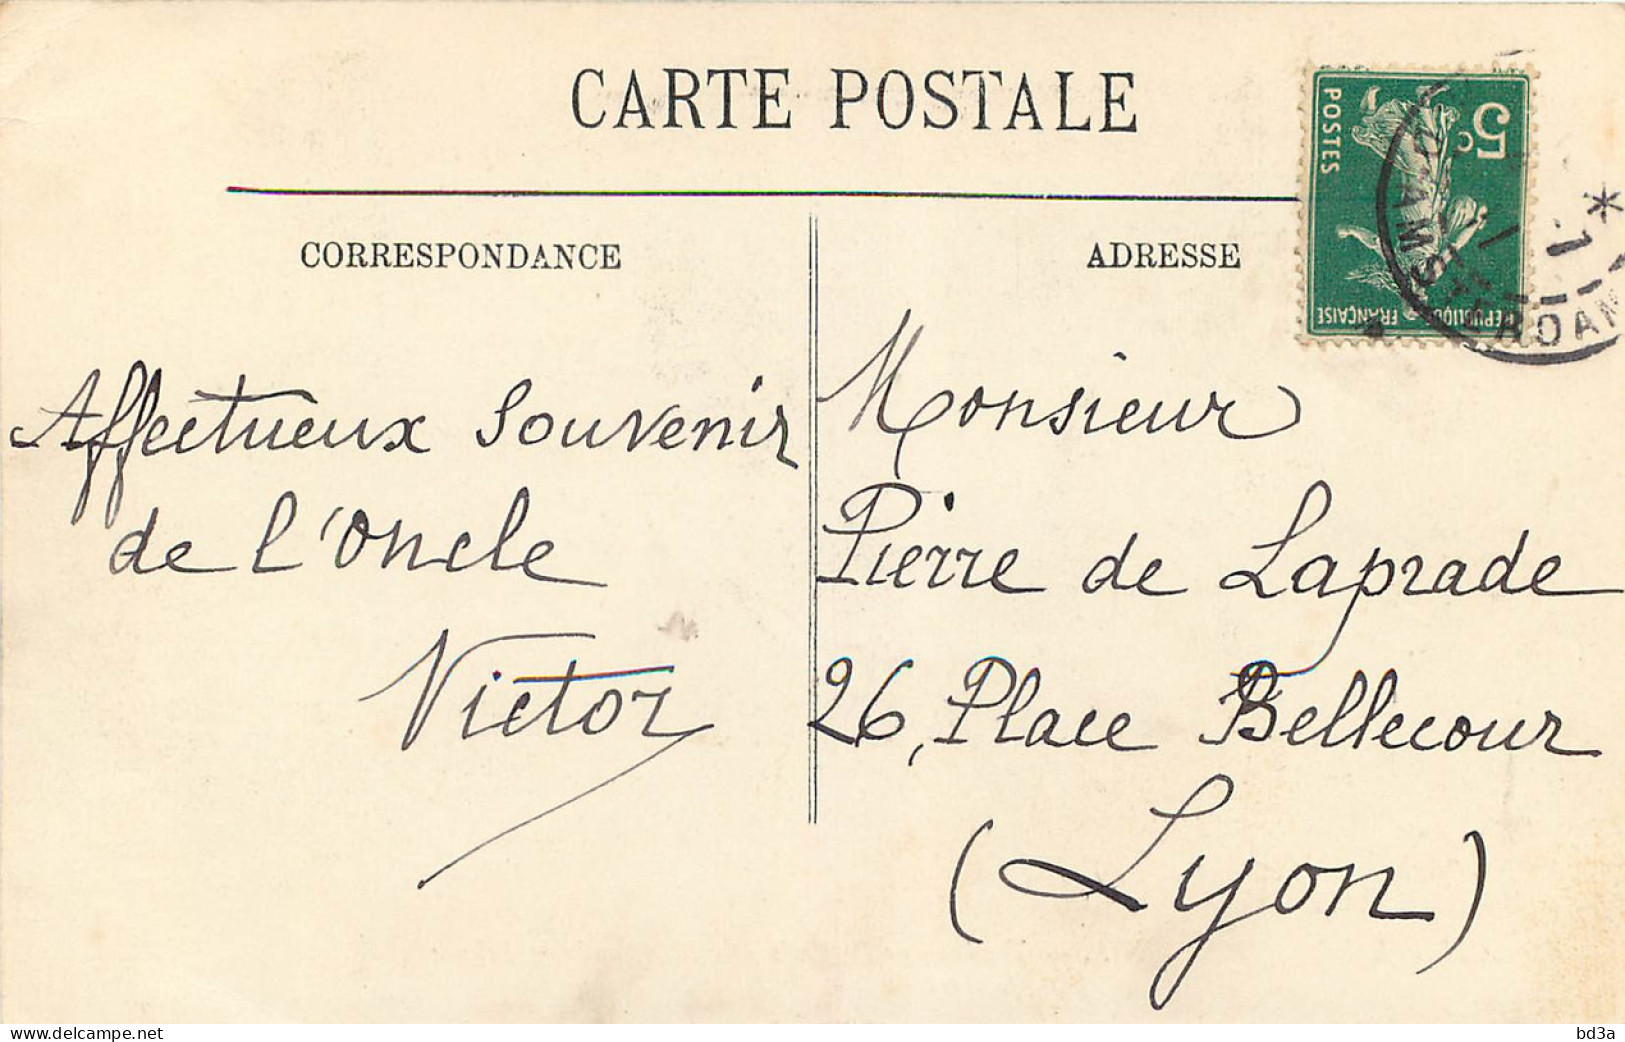 CARTE POSTALE
CORRESPONDANCE
ADRESSE
5c
POSTES
REPUBLIQUE FRANÇAISE
AMSTERDAM
Affectueux Souvenir
de l'Oncle
Victor
Monsieur
Pierre de Laprade
26, Place Bellecour
(Lyon)
www.delcampe.net
bd3a